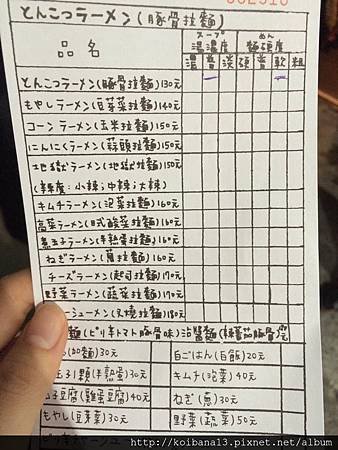 とんこつラーメン(豚骨拉麵)
品名
スープ
湯濃度
めん
麵硬度
濃 普 淡 硬 普 軟 粗
とんこつラーメン(豚骨拉麵)130元
もやしラーメン(豆芽菜拉麵)140元
コーンラーメン(玉米拉麵)150元
にんにくラーメン(蒜頭拉麵)150元
地獄ラーメン(地獄拉麵)150元
(辣度:小辣;中辣;大辣)
キムチラーメン(泡菜拉麵)160元
高菜ラーメン(日式酸菜拉麵)160元
煮玉子ラーメン(半熟蛋拉麵)160元
ねぎラーメン(蔥拉麵)160元
チーズラーメン(起司拉麵)170元
野菜ラーメン(蔬菜拉麵)170元
シューメン(叉燒拉麵)180元
麵(ピリ辛トマト豚骨味)沾醬麵(辣蕃茄豚骨
(加麵)30元
白ごはん(白飯)20元
玉子1顆(半熟蛋)30元
キムチ(泡菜)40元
玉子豆腐(雞蛋豆腐)40元
ねぎ(蔥)30元
もやし(豆芽菜)30元
野菜(蔬菜)50元
http://koibana13.pixnet.net/album